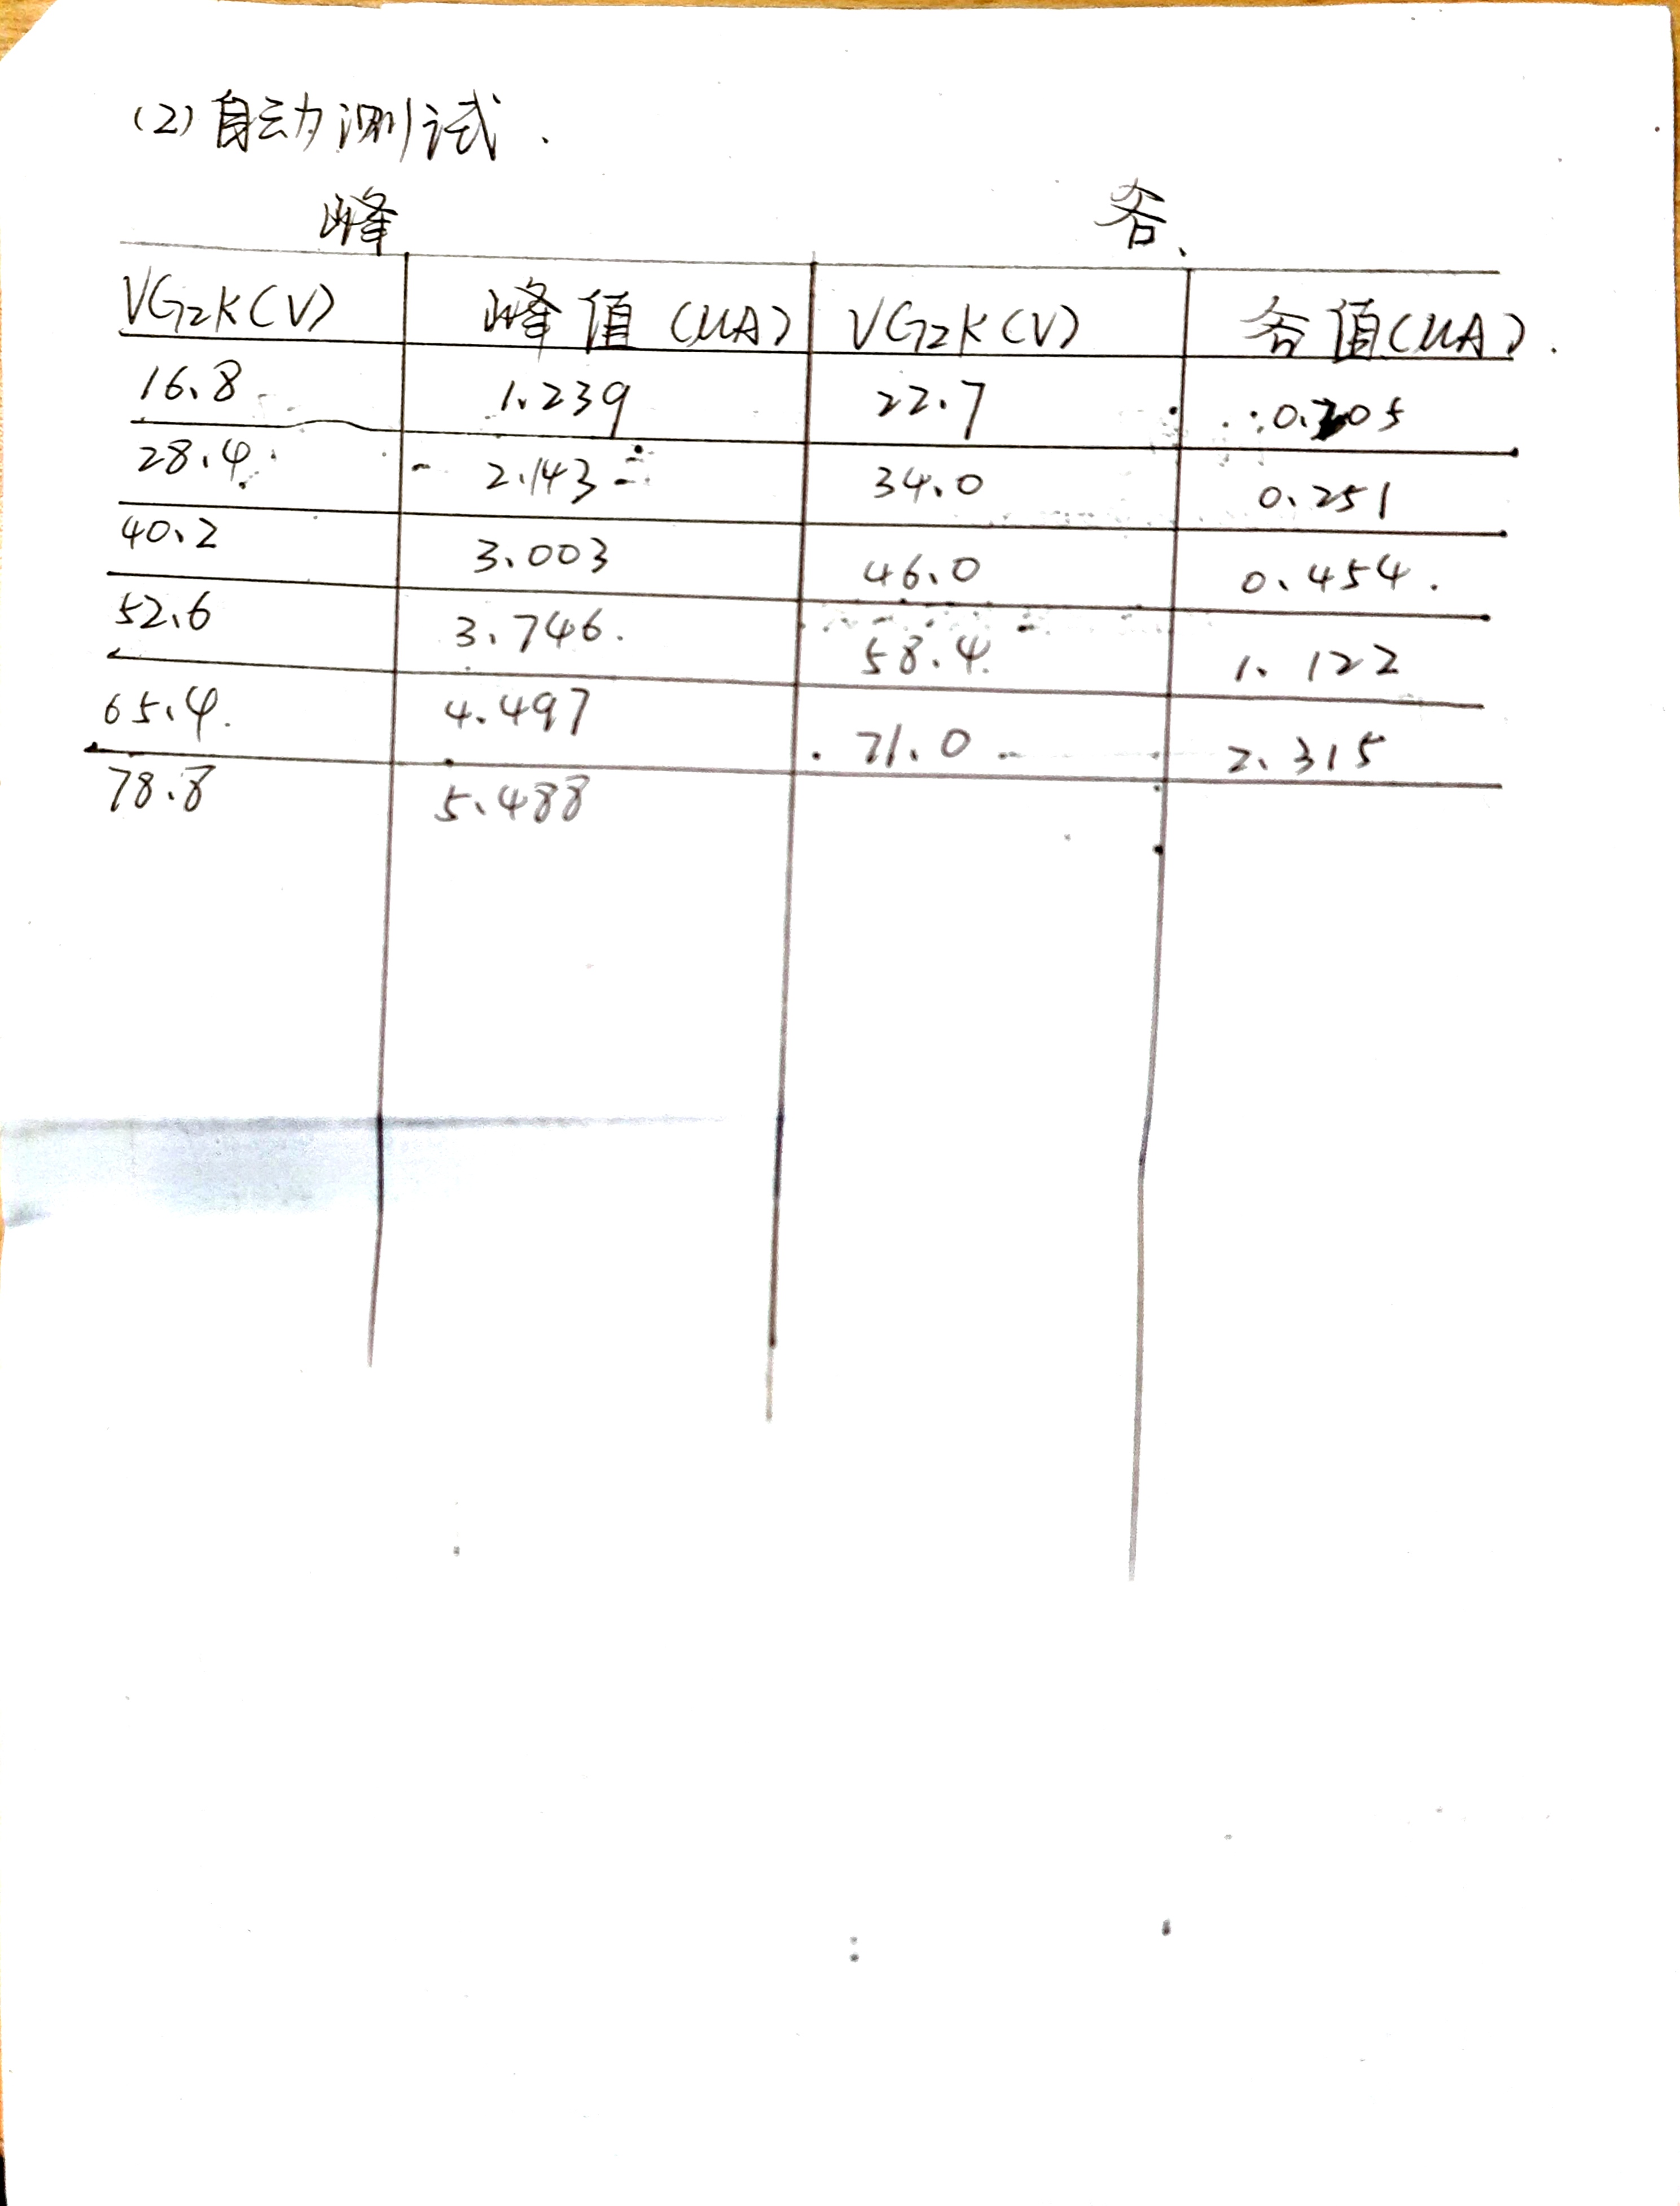 (2) 自动测试.
峰 谷.
VG2K(V) 峰值(μA) VG2K(V) 谷值(μA).
16.8 1.239 22.7
28.4 2.143 34.0 0.251
40.2 3.003 46.0 0.454.
52.6 3.746. 58.4 1.122
65.4. 4.497 71.0 2.315
78.8 5.488